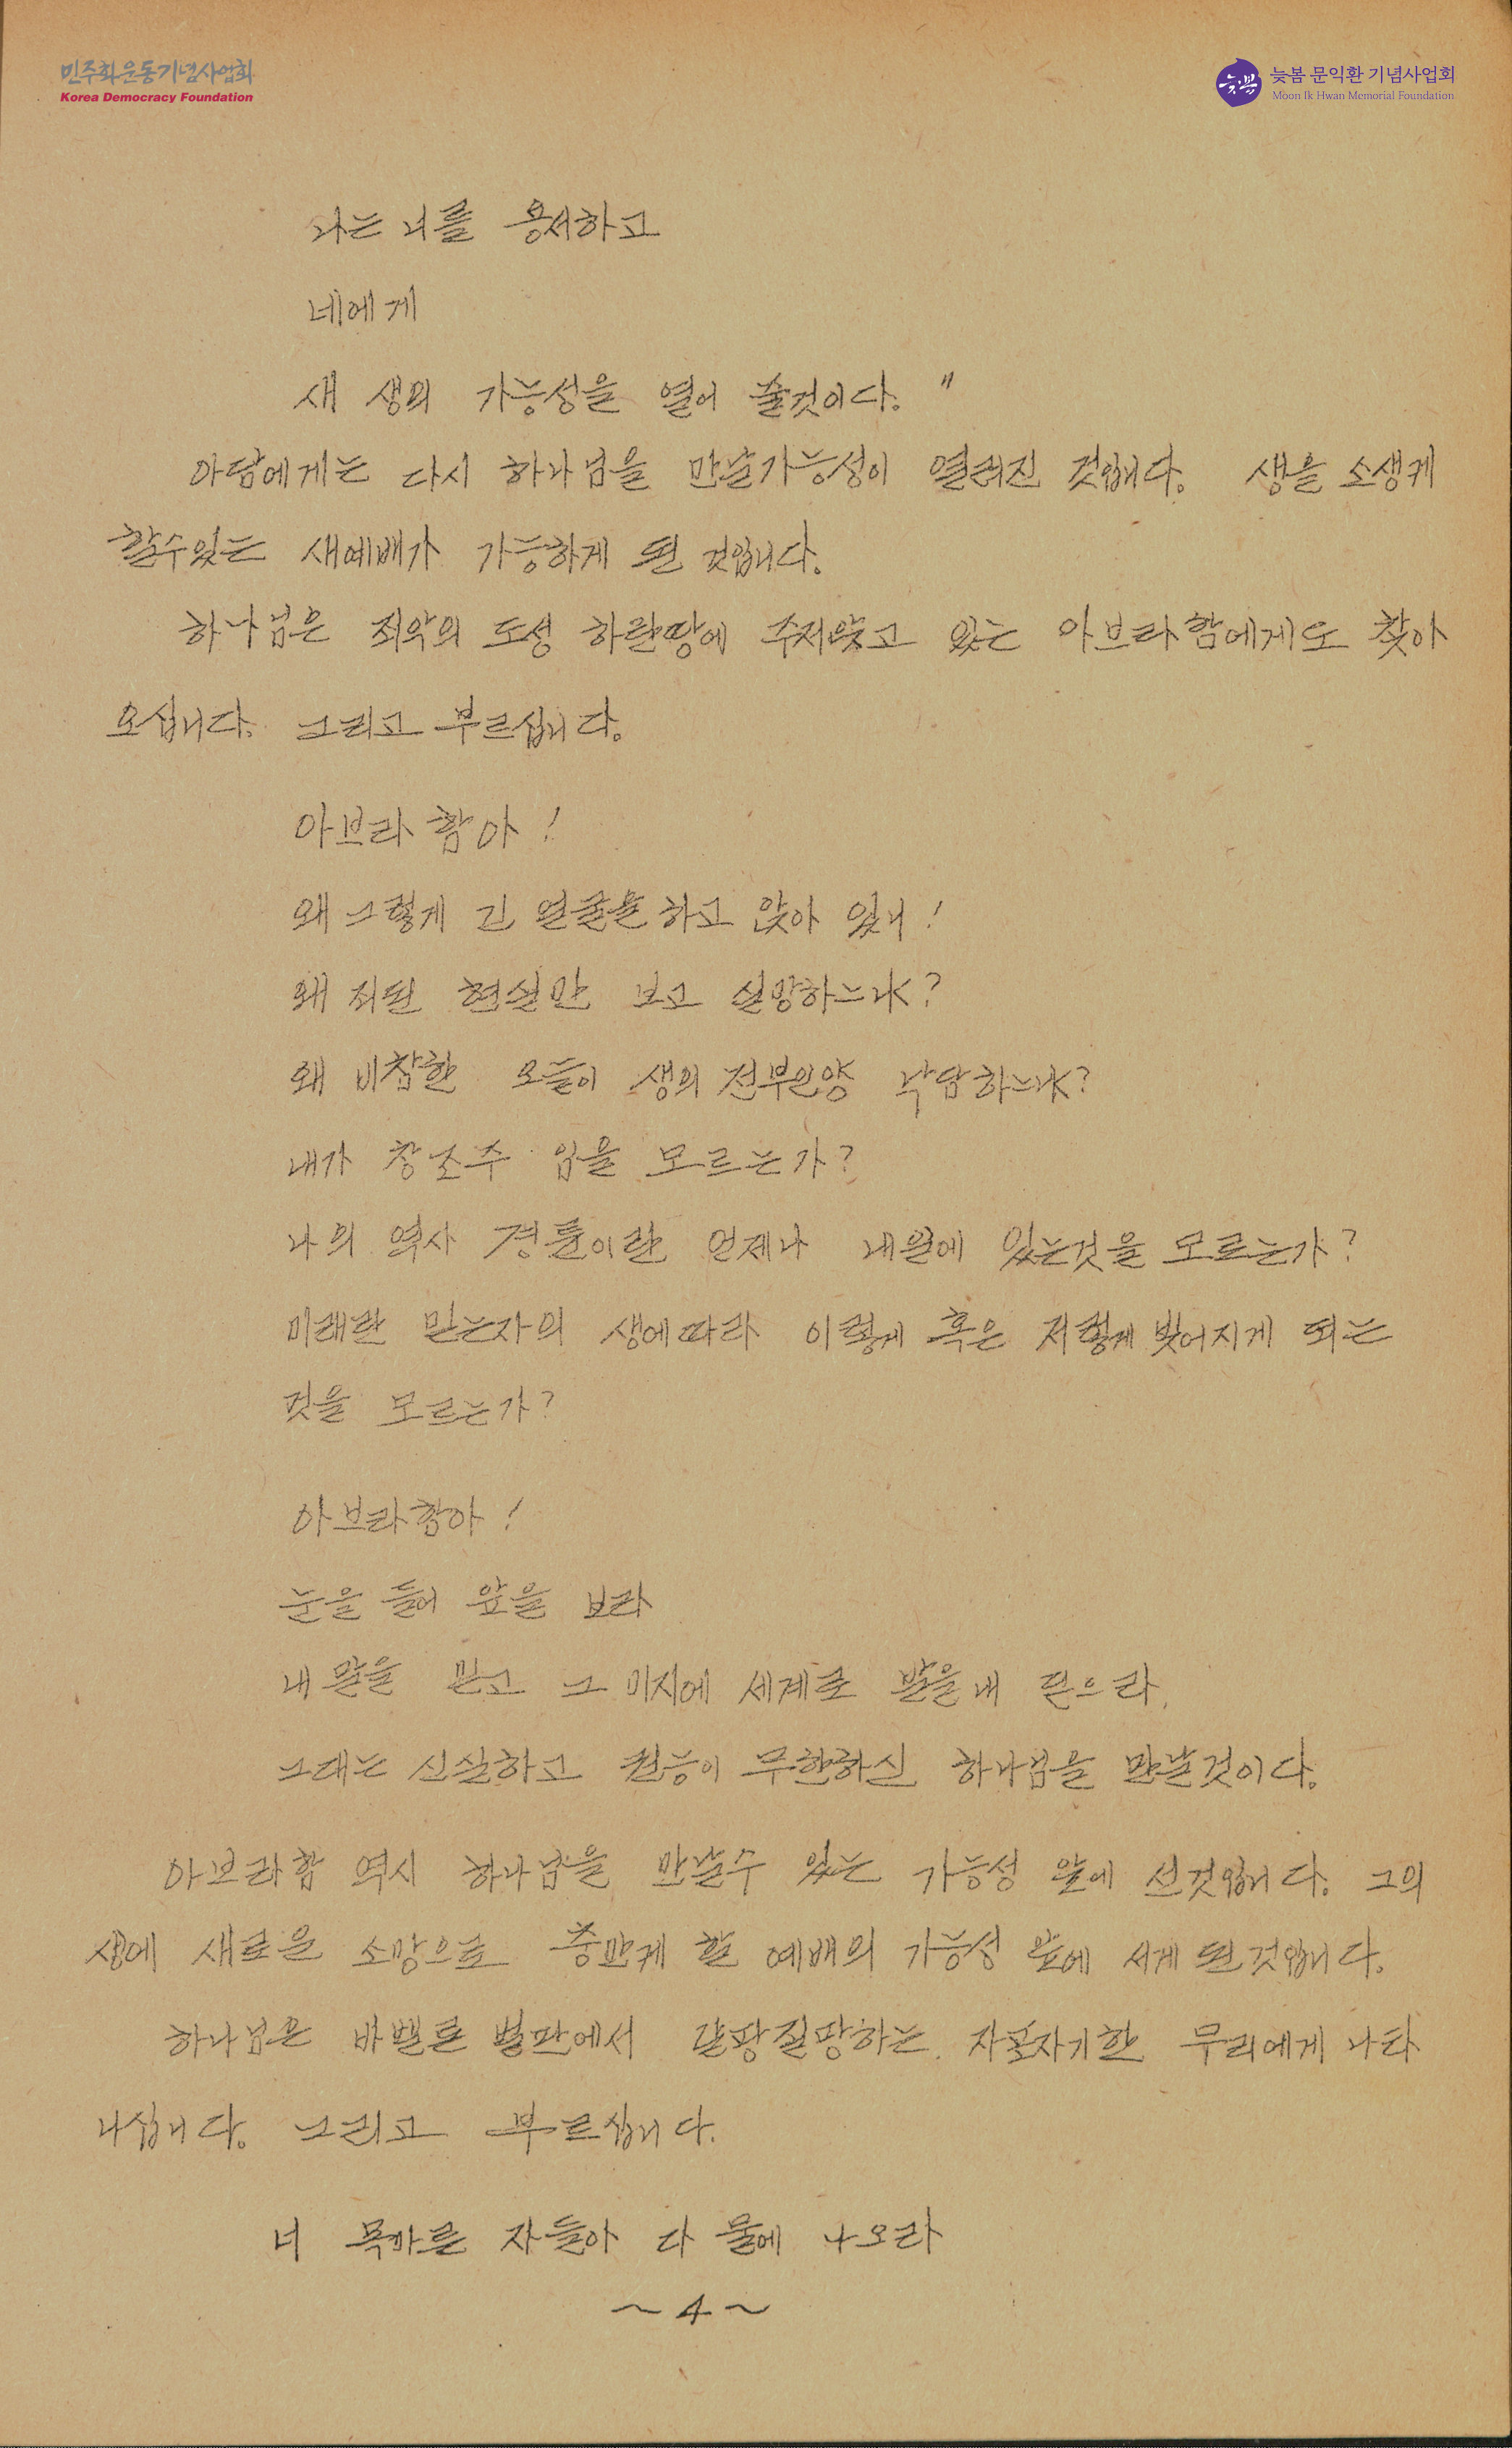 민주화운동기념사업회
Korea Democracy Foundation
늦봄
늦봄 문익환 기념사업회
Moon Ik Hwan Memorial Foundation
나는 너를 용서하고
네에게
새 생의 가능성을 열어 줄것이다. "
아담에게는 다시 하나님을 만날가능성이 열려진 것입니다. 생을 소생케
할수있는 새예배가 가능하게 된 것입니다.
하나님은 죄악의 도성 하란땅에 주저앉고 있는 아브라함에게도 찾아
오십니다. 그리고 부르십니다.
아브라함아 !
왜 그렇게 긴 얼굴을 하고 앉아 있니 !
왜 죄된 현실만 보고 실망하느냐?
왜 비참한 오늘이 생의 전부인양 낙담하느냐?
내가 창조주 임을 모르는가?
나의 역사 경륜이란 언제나 내일에 있는것을 모르는가?
미래란 믿는자의 생에따라 이렇게 혹은 저렇게 빚어지게 되는
것을 모르는가?
아브라함아 !
눈을 들어 앞을 보라
내 말을 믿고 그 미지에 세계로 발을 내 딛으라.
그대는 신실하고 권능이 무한하신 하나님을 만날것이다.
아브라함 역시 하나님을 만날수 있는 가능성 앞에 선것입니다. 그의
생에 새로운 소망으로 충만케 할 예배의 가능성 앞에 서게 된것입니다.
하나님은 바벨론 벌판에서 갈팡질팡하는 자포자기한 무리에게 나타
나십니다. 그리고 부르십니다.
너 목마른 자들아 다 물에 나오라
~ 4 ~